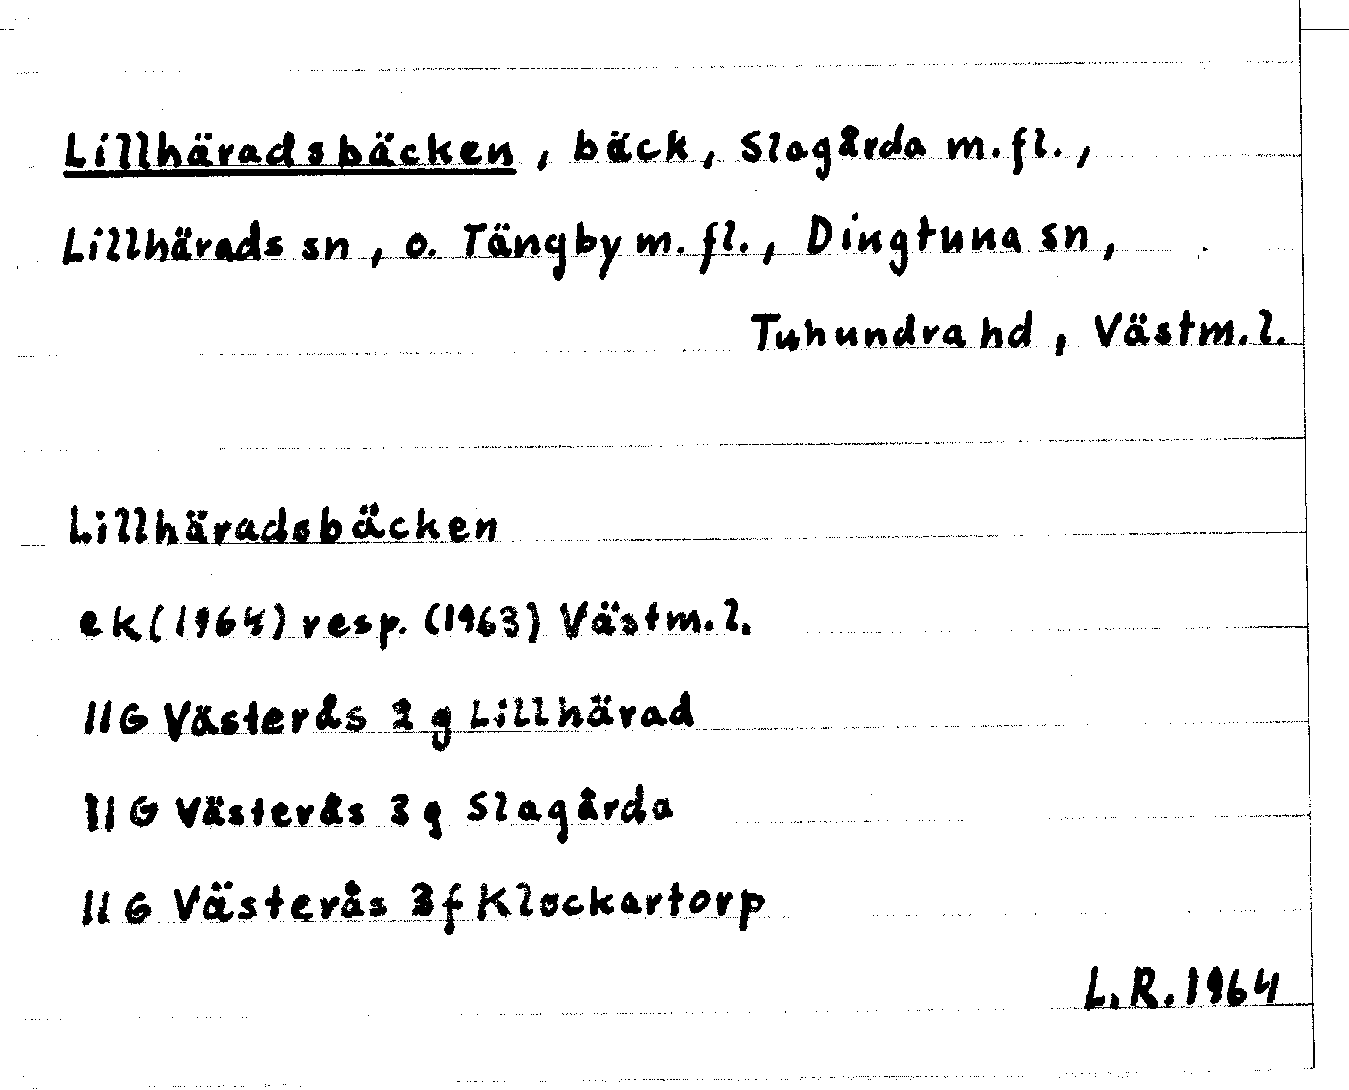 Lillhäradsbäcken, bäck, Slagårda m.fl.,
Lillhärads sn, o. Tängby m.fl., Dingtuna sn,
Tuhundra hd, Västm.l.
Lillhäradsbäcken
ek(1964) resp. (1963) Västm.l.
11G Västerås 2 g Lillhärad
11G Västerås 3 g Slagårda
11G Västerås 3f Klockartorp
L.R.1964